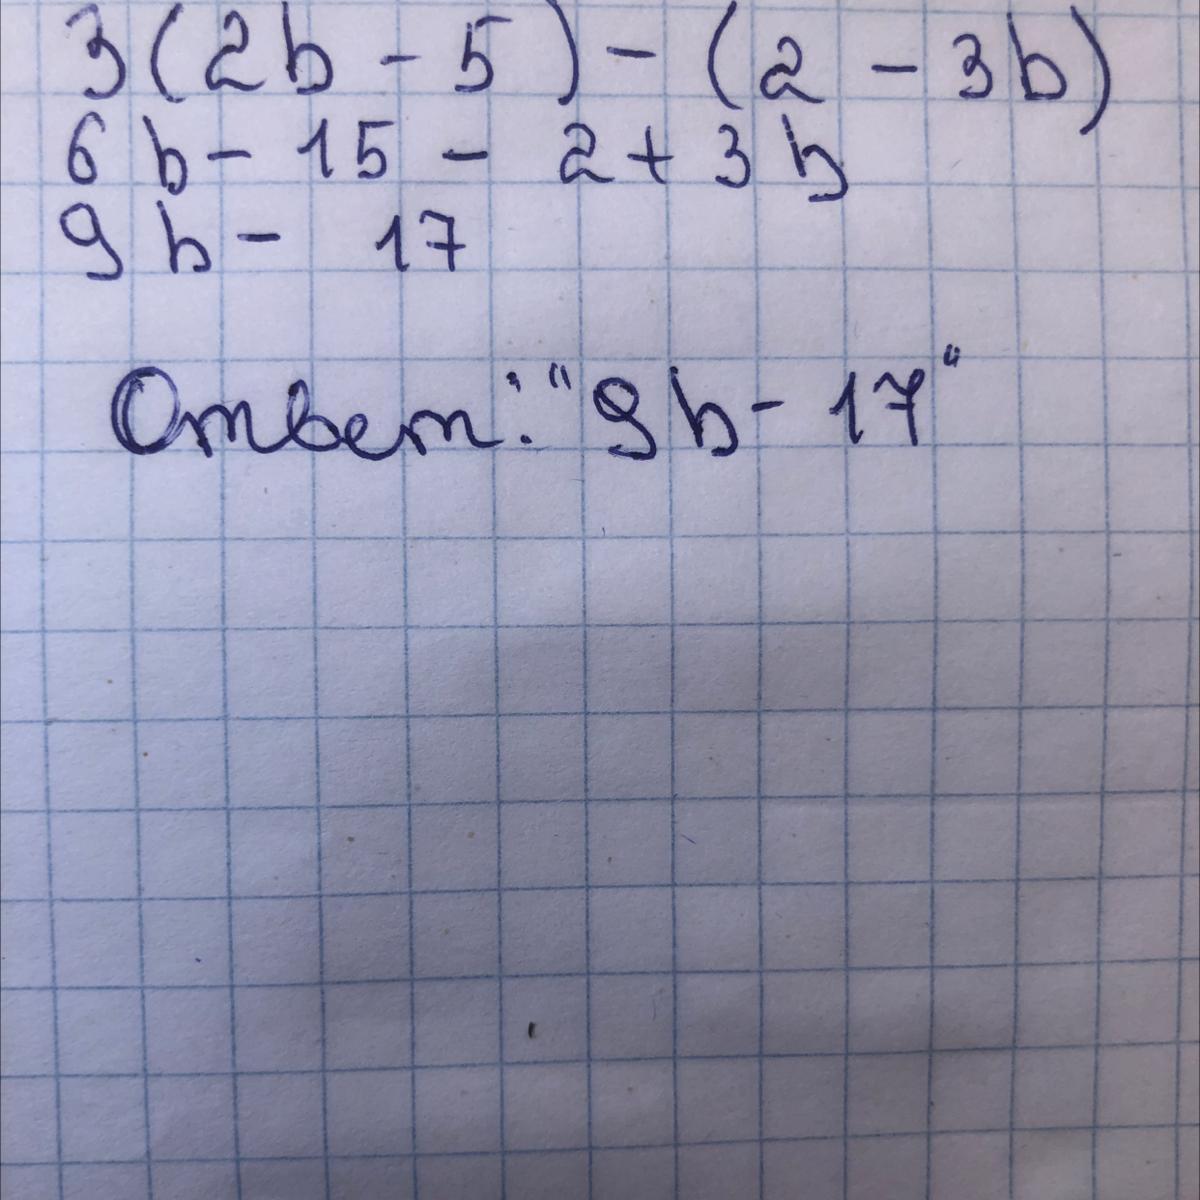 3(2b - 5) - (2 - 3b)
6b - 15 - 2 + 3b
9b - 17
Ответ: "9b - 17"